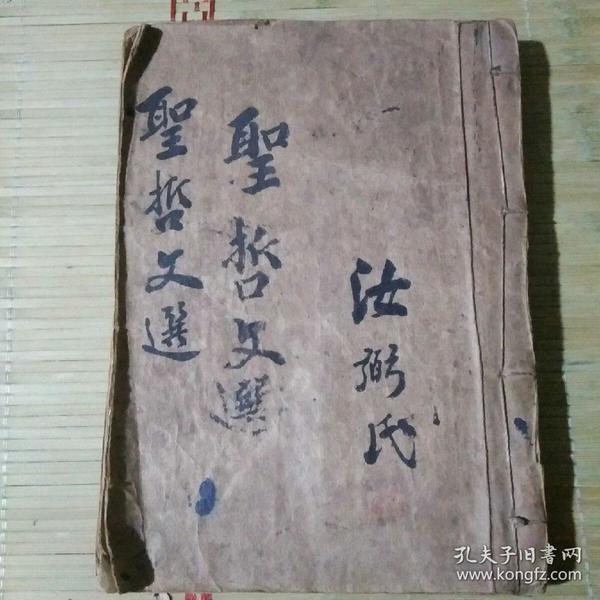 汝弼氏
聖哲文選
聖哲文選
孔夫子旧书网
www.kongfz.com